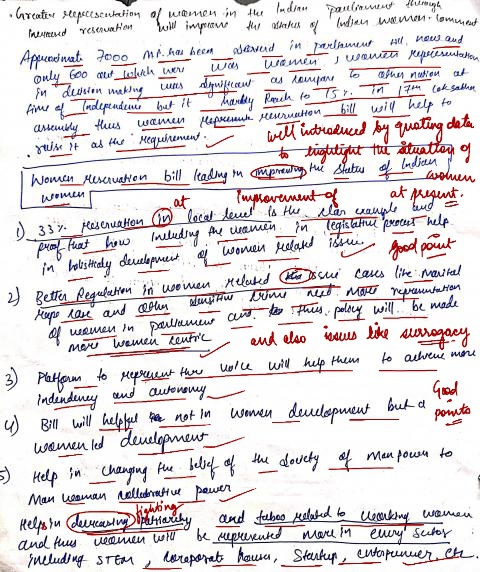 • Greater representation of women in the Indian parliament through
increased reservation will improve the status of Indian women. Comment
Approximate 7000 M.P. has been elected in parliament till now and
only 600 out which were was women, women representation
in decision making was significant as compare to other nation at
time of Independence but it hardly Reach to 15% in 17th Loksabha
assembly thus women represente reservation bill will help to
raise it as the requirement.
well introduced by quoting data
to highlight the situation of
women
at present.
Women reservation bill leading in improving the status of Indian
women
at improvement of
1) 33% reservation in local level is the clear example and
proof that how including the women in legislative process help
in holistically development of women related issue
Good point
2) Better Regulation in women related issue cases like marital
rape case and other sensitive crime need more representation
of women in parliament and thus policy will be made
more women centric
and also issues like surrogacy
3) Platform to represent there voice will help them to achieve more
indendency and autonomy
Good
points
4) Bill will helpful not in women development but a
women led development
5) Help in changing the belief of the society of man power to
Man woman collabrative power
fighting
Helps in decreasing patriarchy and taboo related to working women
and thus women will be represented more in every sector
including STEM, corporate houses, Startup, enterpreuner, etc.